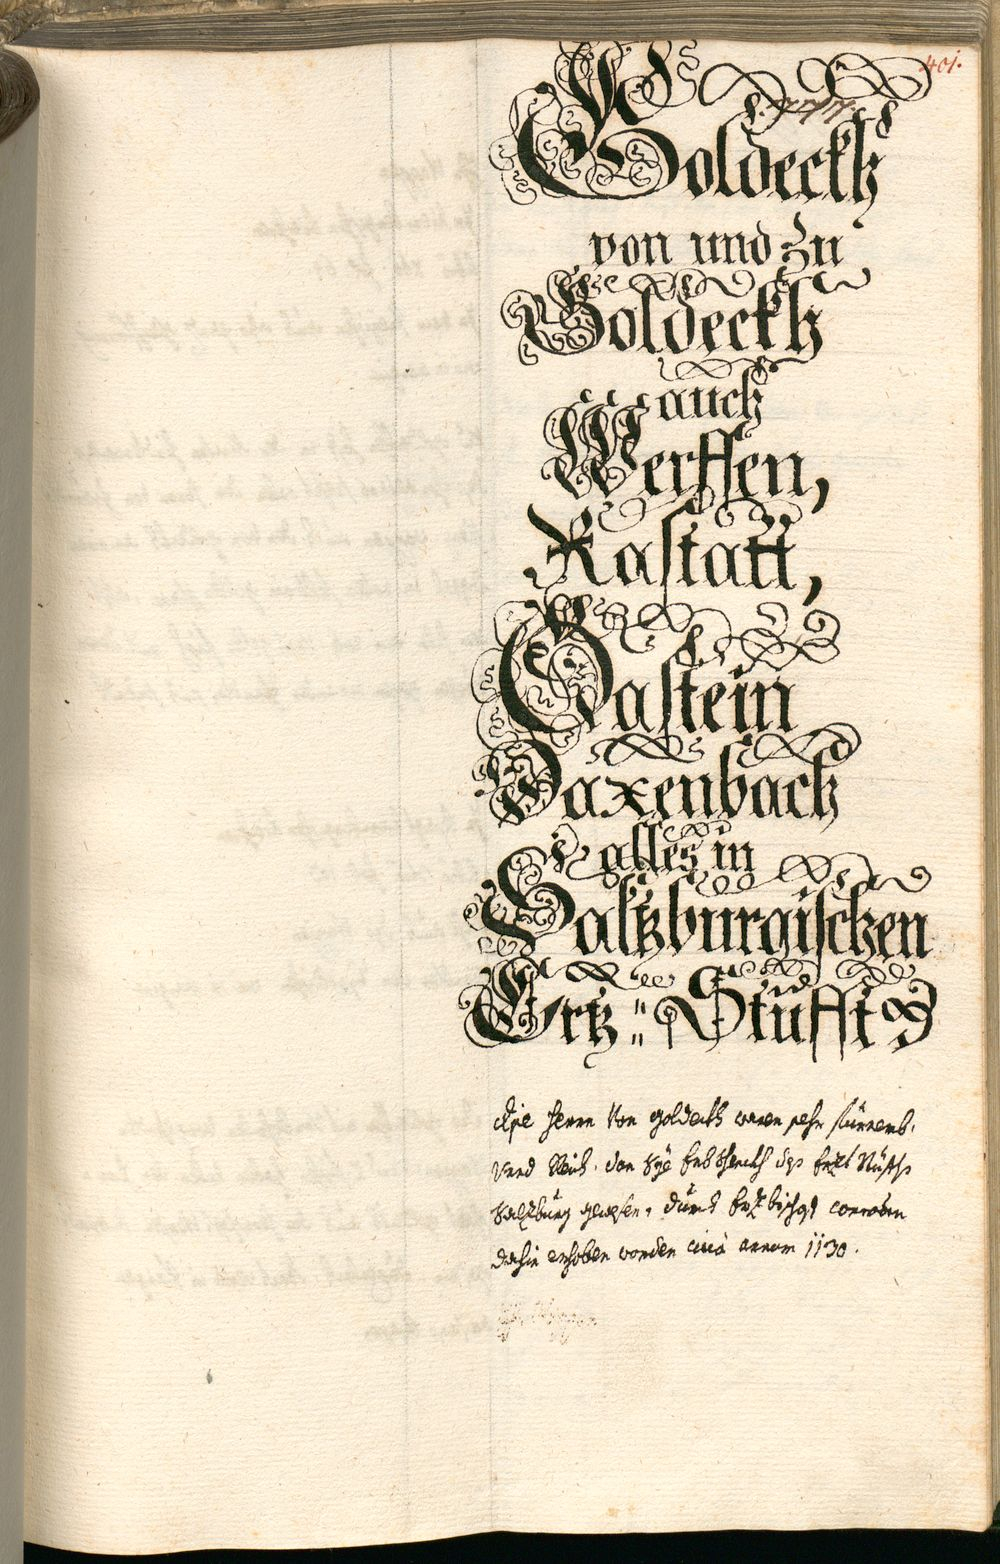 401.
777.
Goldeckh
von und zu
Goldeckh
auch
Werffen,
Rastatt,
Gastein
Daxenbach
alles in
Saltzburgischen
Ertz=Stüfft
Die Herrn von Goldeckh waren sehr
und Reich, der
Saltzburg gewesen, durch Ertzbischof
dahin erhoben worden circa annum 1130.